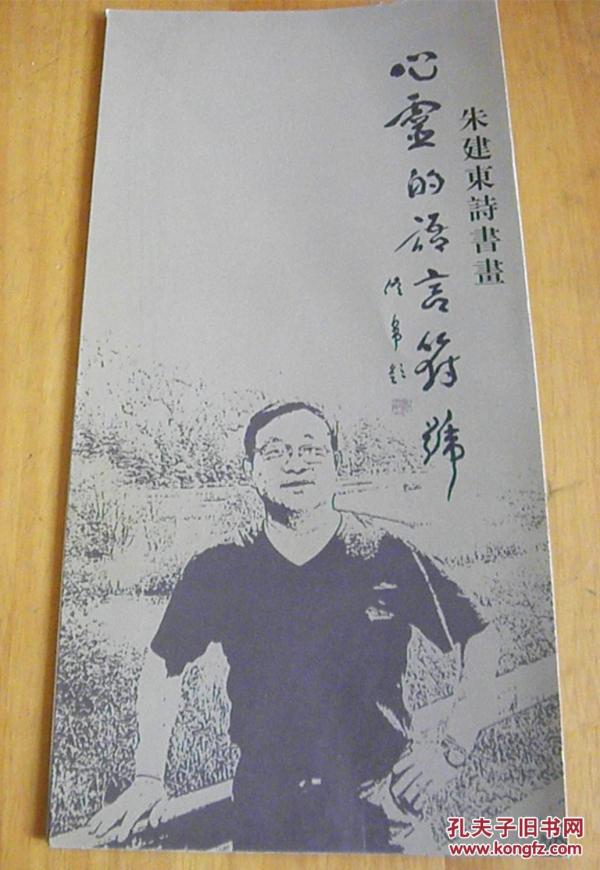 朱建東詩書畫
心靈的語言符號
孔夫子旧书网
www.kongfz.com